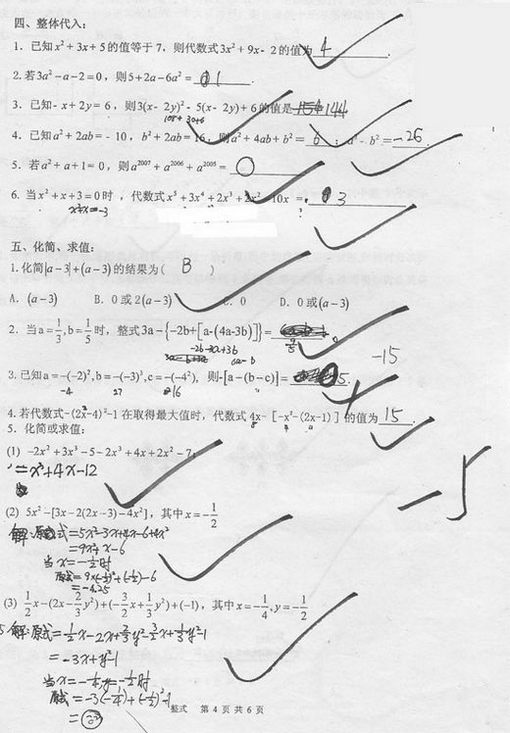 四、整体代入：
1. 已知x²+3x+5的值等于7，则代数式3x²+9x-2的值为 4
2.若3a²-a-2=0，则5+2a-6a²= 1 .
3. 已知-x+2y=6，则3(x-2y)²-5(x-2y)+6的值是 144
108+30+6
4. 已知a²+2ab=-10，b²+2ab=16，则a²+4ab+b²= 6 ；a²-b²=-26
5. 若a²+a+1=0，则a²⁰⁰⁷+a²⁰⁰⁶+a²⁰⁰⁵= 0
6. 当x²+x+3=0时，代数式x⁵+3x⁴+2x³+2x²-10x= 3
x²+x=-3
五、化简、求值：
1.化简|a-3|+(a-3)的结果为( B )
A. (a-3) B. 0或2(a-3) C. 0 D. 0或(a-3)
2. 当a=1/3,b=1/5时，整式3a-{-2b+[a-(4a-3b)]}=
-2b-3a+3b
6a-b
-15
3.已知a=-(-2)²,b=-(-3)³,c=-(-4²)，则-[a-(b-c)]= 15.
-4 27 16
4.若代数式-(2x-4)²-1在取得最大值时，代数式4x-[-x²-(2x-1)]的值为 15 .
5. 化简或求值：
(1) -2x²+3x³-5-2x³+4x+2x²-7;
=x³+4x-12
-5
(2) 5x²-[3x-2(2x-3)-4x²]，其中x=-1/2
解:原式=5x²-3x+4x-6+4x²
=9x²+x-6
当x=-1/2时
原式=9×(-1/2)²+(-1/2)-6
=-4.25
(3) 1/2x-(2x-2/3y²)+(-3/2x+1/3y²)+(-1)，其中x=-1/4,y=-1/2
解:原式=1/2x-2x+2/3y²-3/2x+1/3y²-1
=-3x+y²-1
当x=-1/4,y=-1/2时
原式=-3(-1/4)+(-1/2)²-1
=
整式 第4页共6页